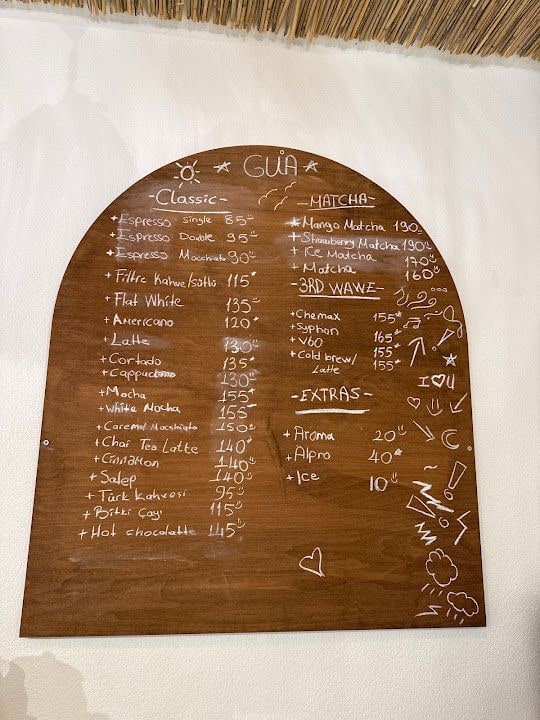 GUA
-Classic-
+ Espresso single 85
+ Espresso Double 95
+ Espresso Macchiato 90
+ Filtre Kahve/sütlü 115
+ Flat White 135
+ Americano 120
+ Latte 130
+ Cortado 135
+ Cappuccino 130
+ Mocha 155
+ White Mocha 155
+ Caramel Macchiato 150
+ Chai Tea Latte 140
+ Cinnamon 140
+ Salep 140
+ Türk kahvesi 95
+ Bitki Çayı 115
+ Hot chocolatte 145
-MATCHA-
+ Mango Matcha 190
+ Strawberry Matcha 190
+ Ice Matcha 170
+ Matcha 160
-3RD WAWE-
+ Chemax 155
+ Syphon 165
+ V60 155
+ Cold brew/ 155
Latte
-EXTRAS-
+ Aroma 20
+ Alpro 40
+ Ice 10
I♡U